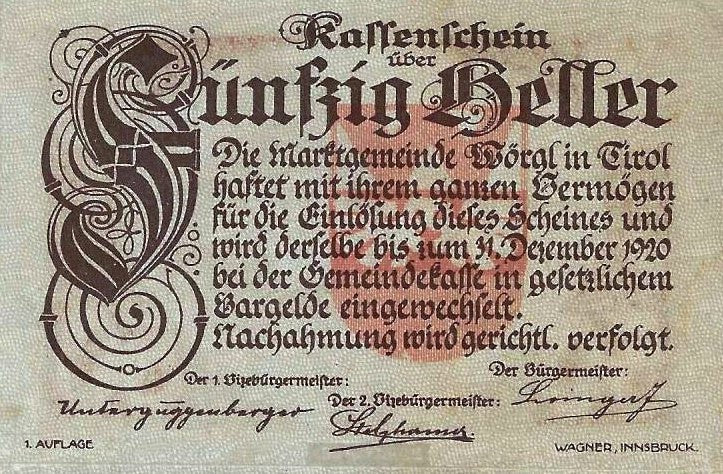 Kassenschein
über
Fünfzig Heller
Die Marktgemeinde Wörgl in Tirol
haftet mit ihrem ganzen Vermögen
für die Einlösung dieses Scheines und
wird derselbe bis zum 31. Dezember 1920
bei der Gemeindekasse in gesetzlichem
Bargelde eingewechselt.
Nachahmung wird gerichtl. verfolgt.
Der 1. Vizebürgermeister:
Der Bürgermeister:
Unterguggenberger
Der 2. Vizebürgermeister:
1. AUFLAGE
WAGNER, INNSBRUCK.